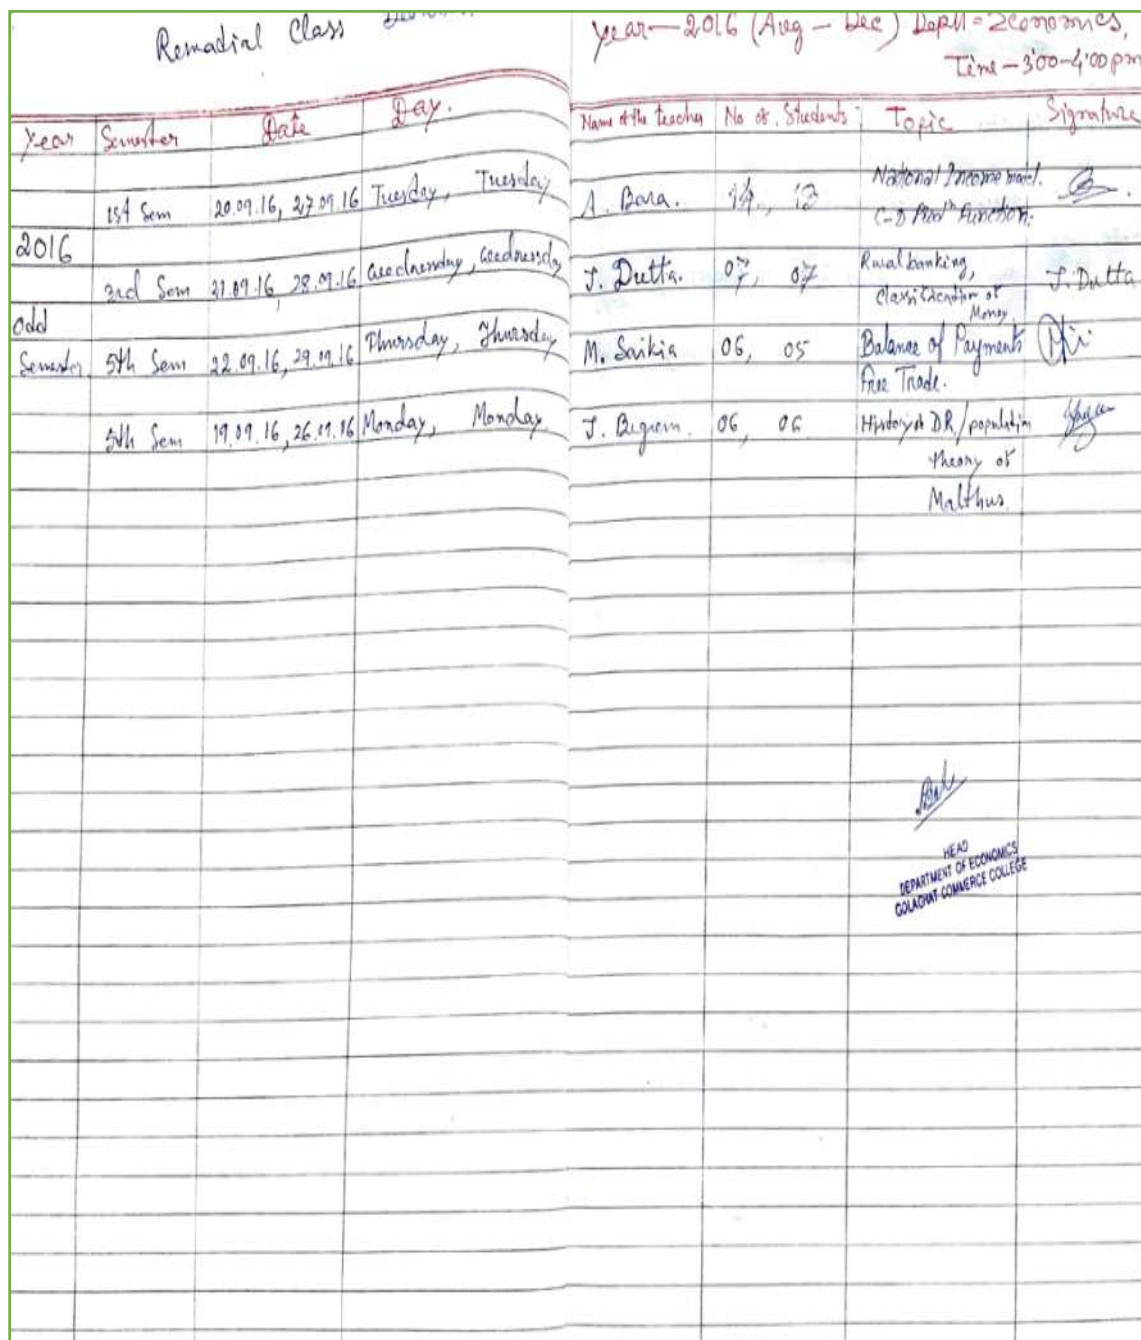 Remadial Class
Year — 2016 (Aug – Dec) Deptt = Economics,
Time – 3:00–4:00 pm
Year Semester Date Day. Name of the teacher No of. Students Topic Signature
1st Sem 20.09.16, 27.09.16 Tuesday, Tuesday A. Bara. 14, 13 National Income model.
C-D Prodⁿ Function.
2016
3rd Sem 21.09.16, 28.09.16 Wednesday, Wednesday J. Dutta. 07, 07 Rural banking, J. Dutta
Classification of
Money
Odd
Semester 5th Sem 22.09.16, 29.09.16 Thursday, Thursday M. Saikia 06, 05 Balance of Payments
Free Trade.
5th Sem 19.09.16, 26.09.16 Monday, Monday J. Begum. 06, 06 History of DR/population
theory of
Malthus.
HEAD
DEPARTMENT OF ECONOMICS
GOLAGHAT COMMERCE COLLEGE